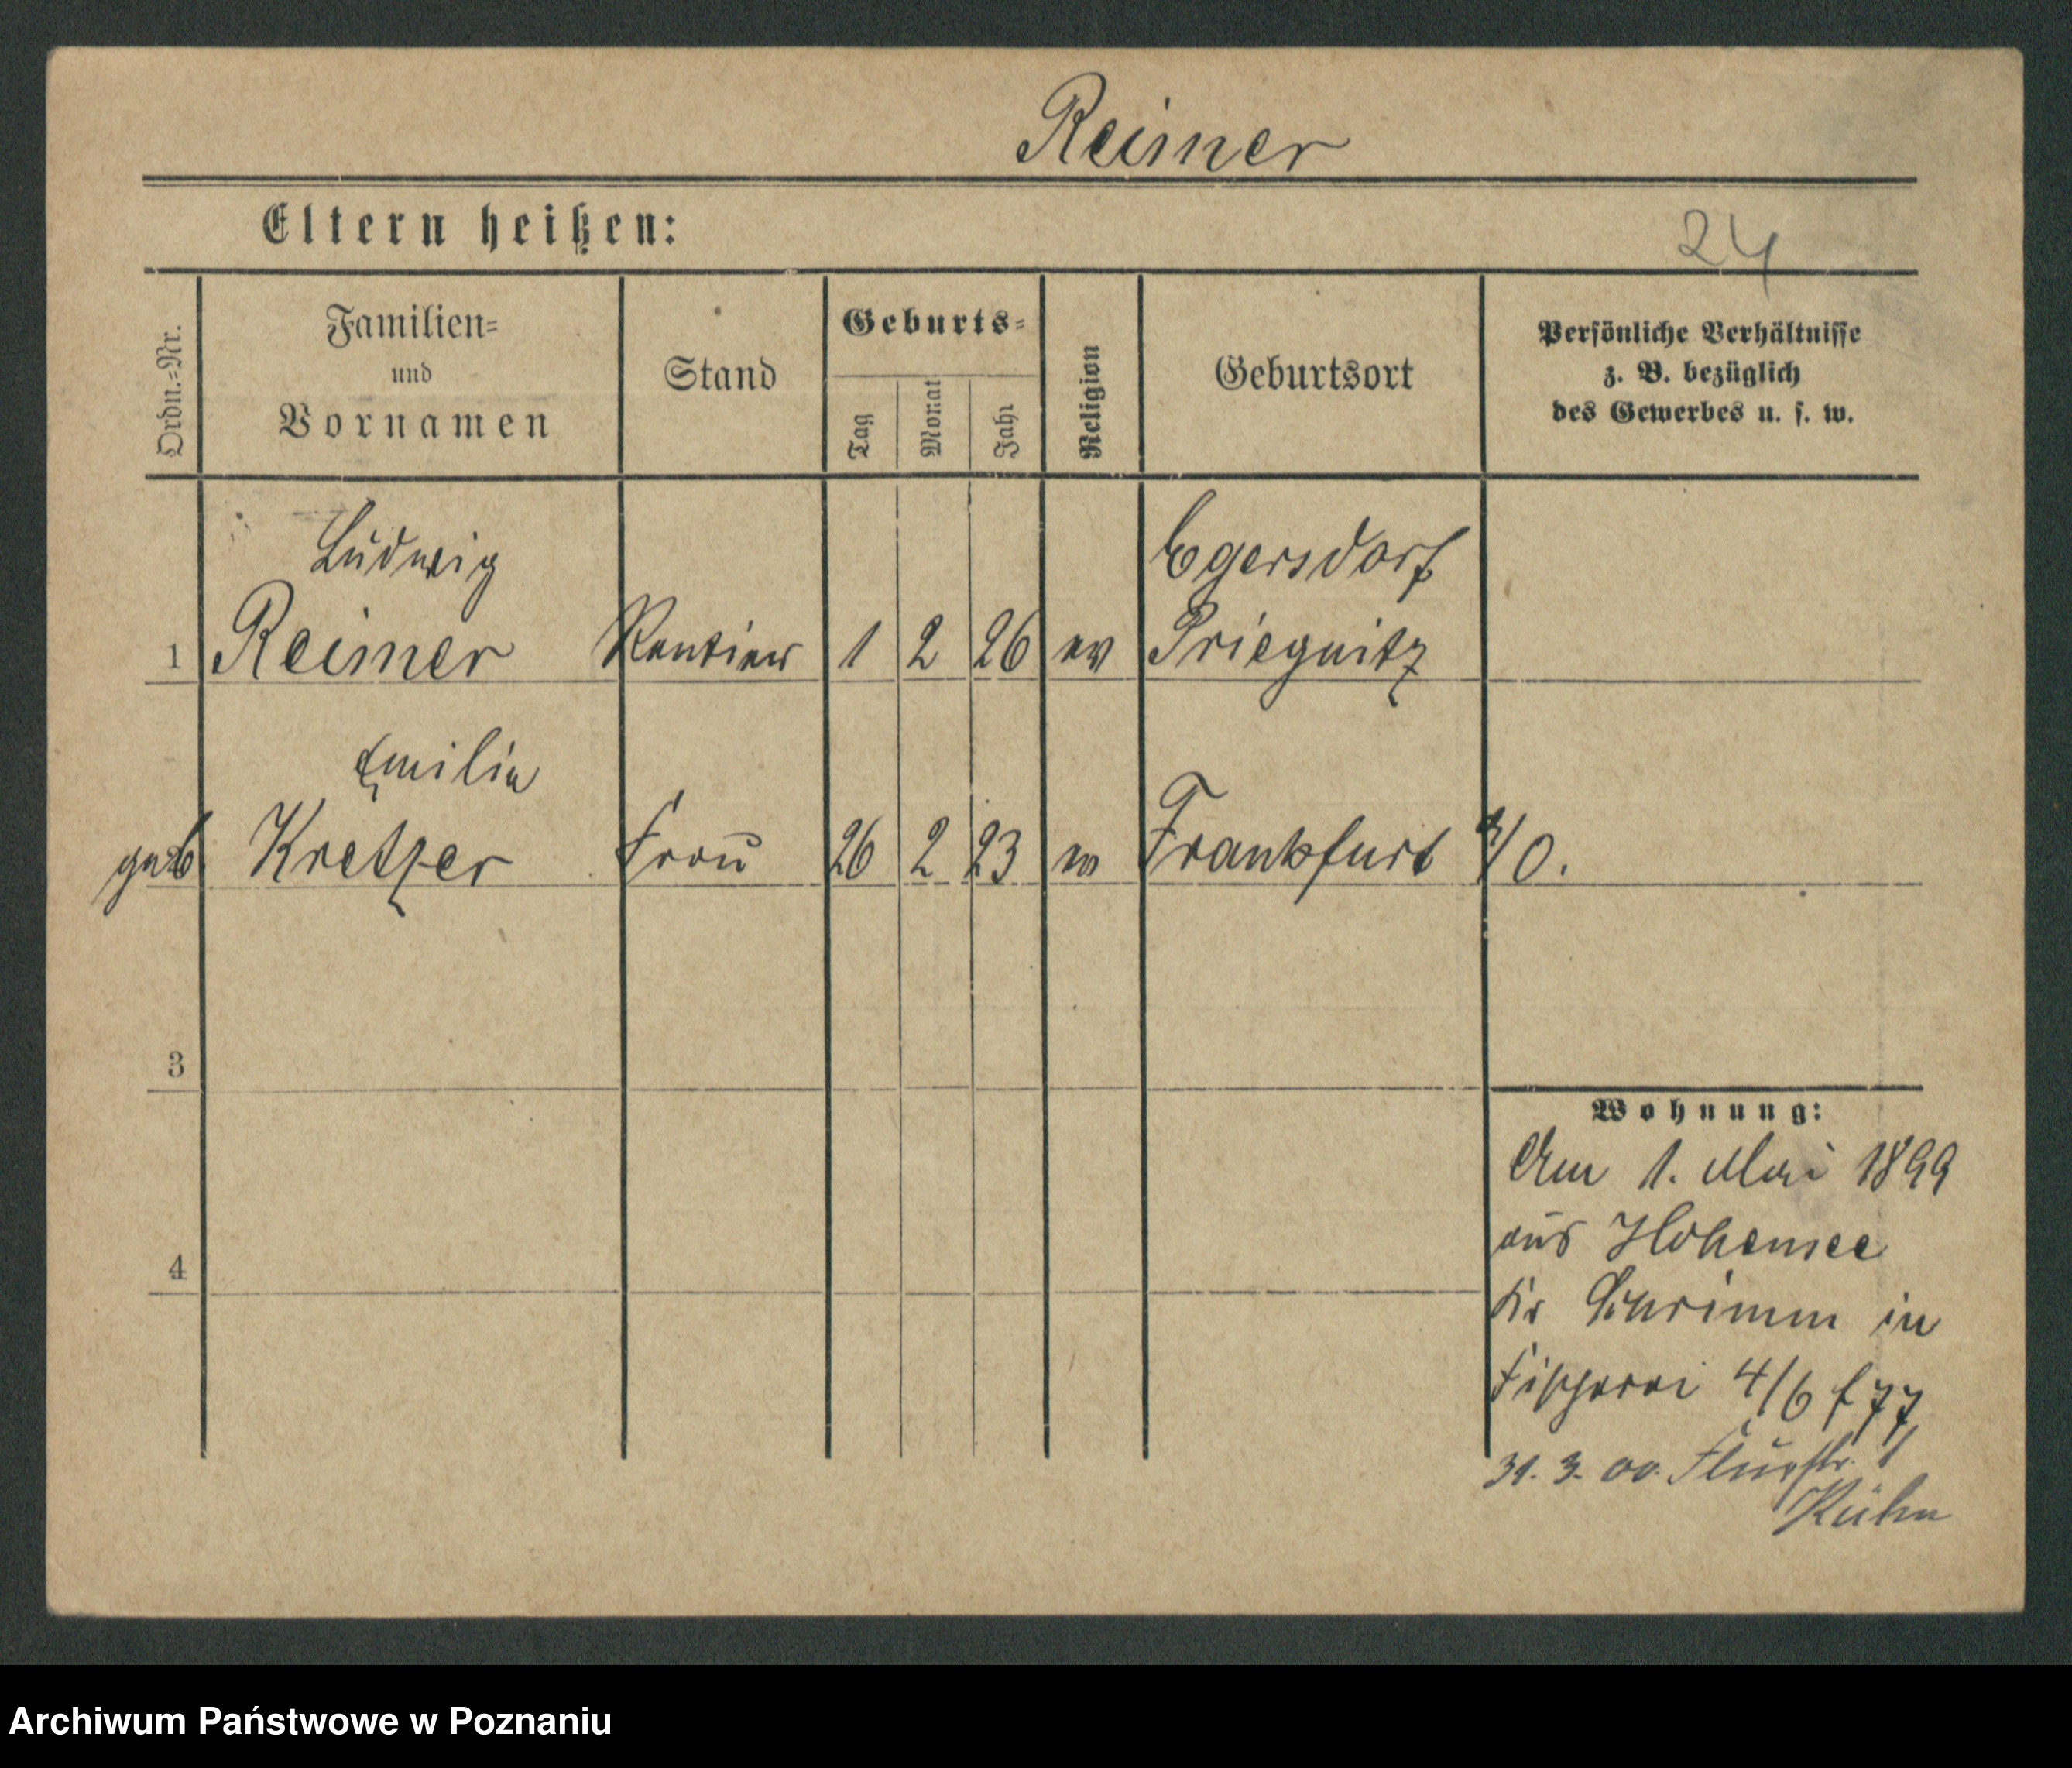 Reimer
Eltern heißen:
24
Ordn.=Nr.
Familien=
und
Vornamen
Stand
Geburts=
Tag
Monat
Jahr
Religion
Geburtsort
Persönliche Verhältnisse
z. B. bezüglich
des Gewerbes u. s. w.
Ludwig
Egersdorf
1 Reimer Rentier 1 2 26 ev Priegnitz
Emilie
geb Kretzer Frau 26 2 23 ev Frankfurt a/O.
3
Wohnung:
Am 1. Mai 1899
aus Hohensee
4
Kr Schrimm in
Fischerei 4/6 f 77
31. 3. 00. Flurstr. 1
Kühn
Archiwum Państwowe w Poznaniu